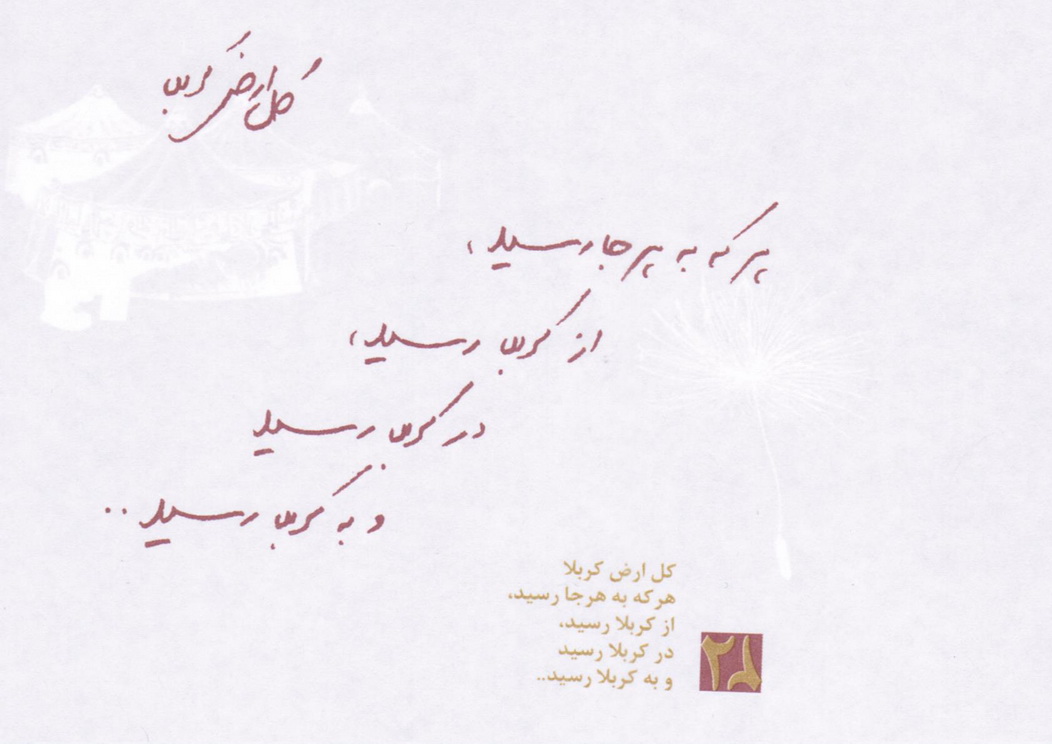 کل ارض کربلا
هر که به هر جا رسید،
از کربلا رسید،
در کربلا رسید
و به کربلا رسید..
کل ارض کربلا
هرکه به هرجا رسید،
از کربلا رسید،
در کربلا رسید
و به کربلا رسید..